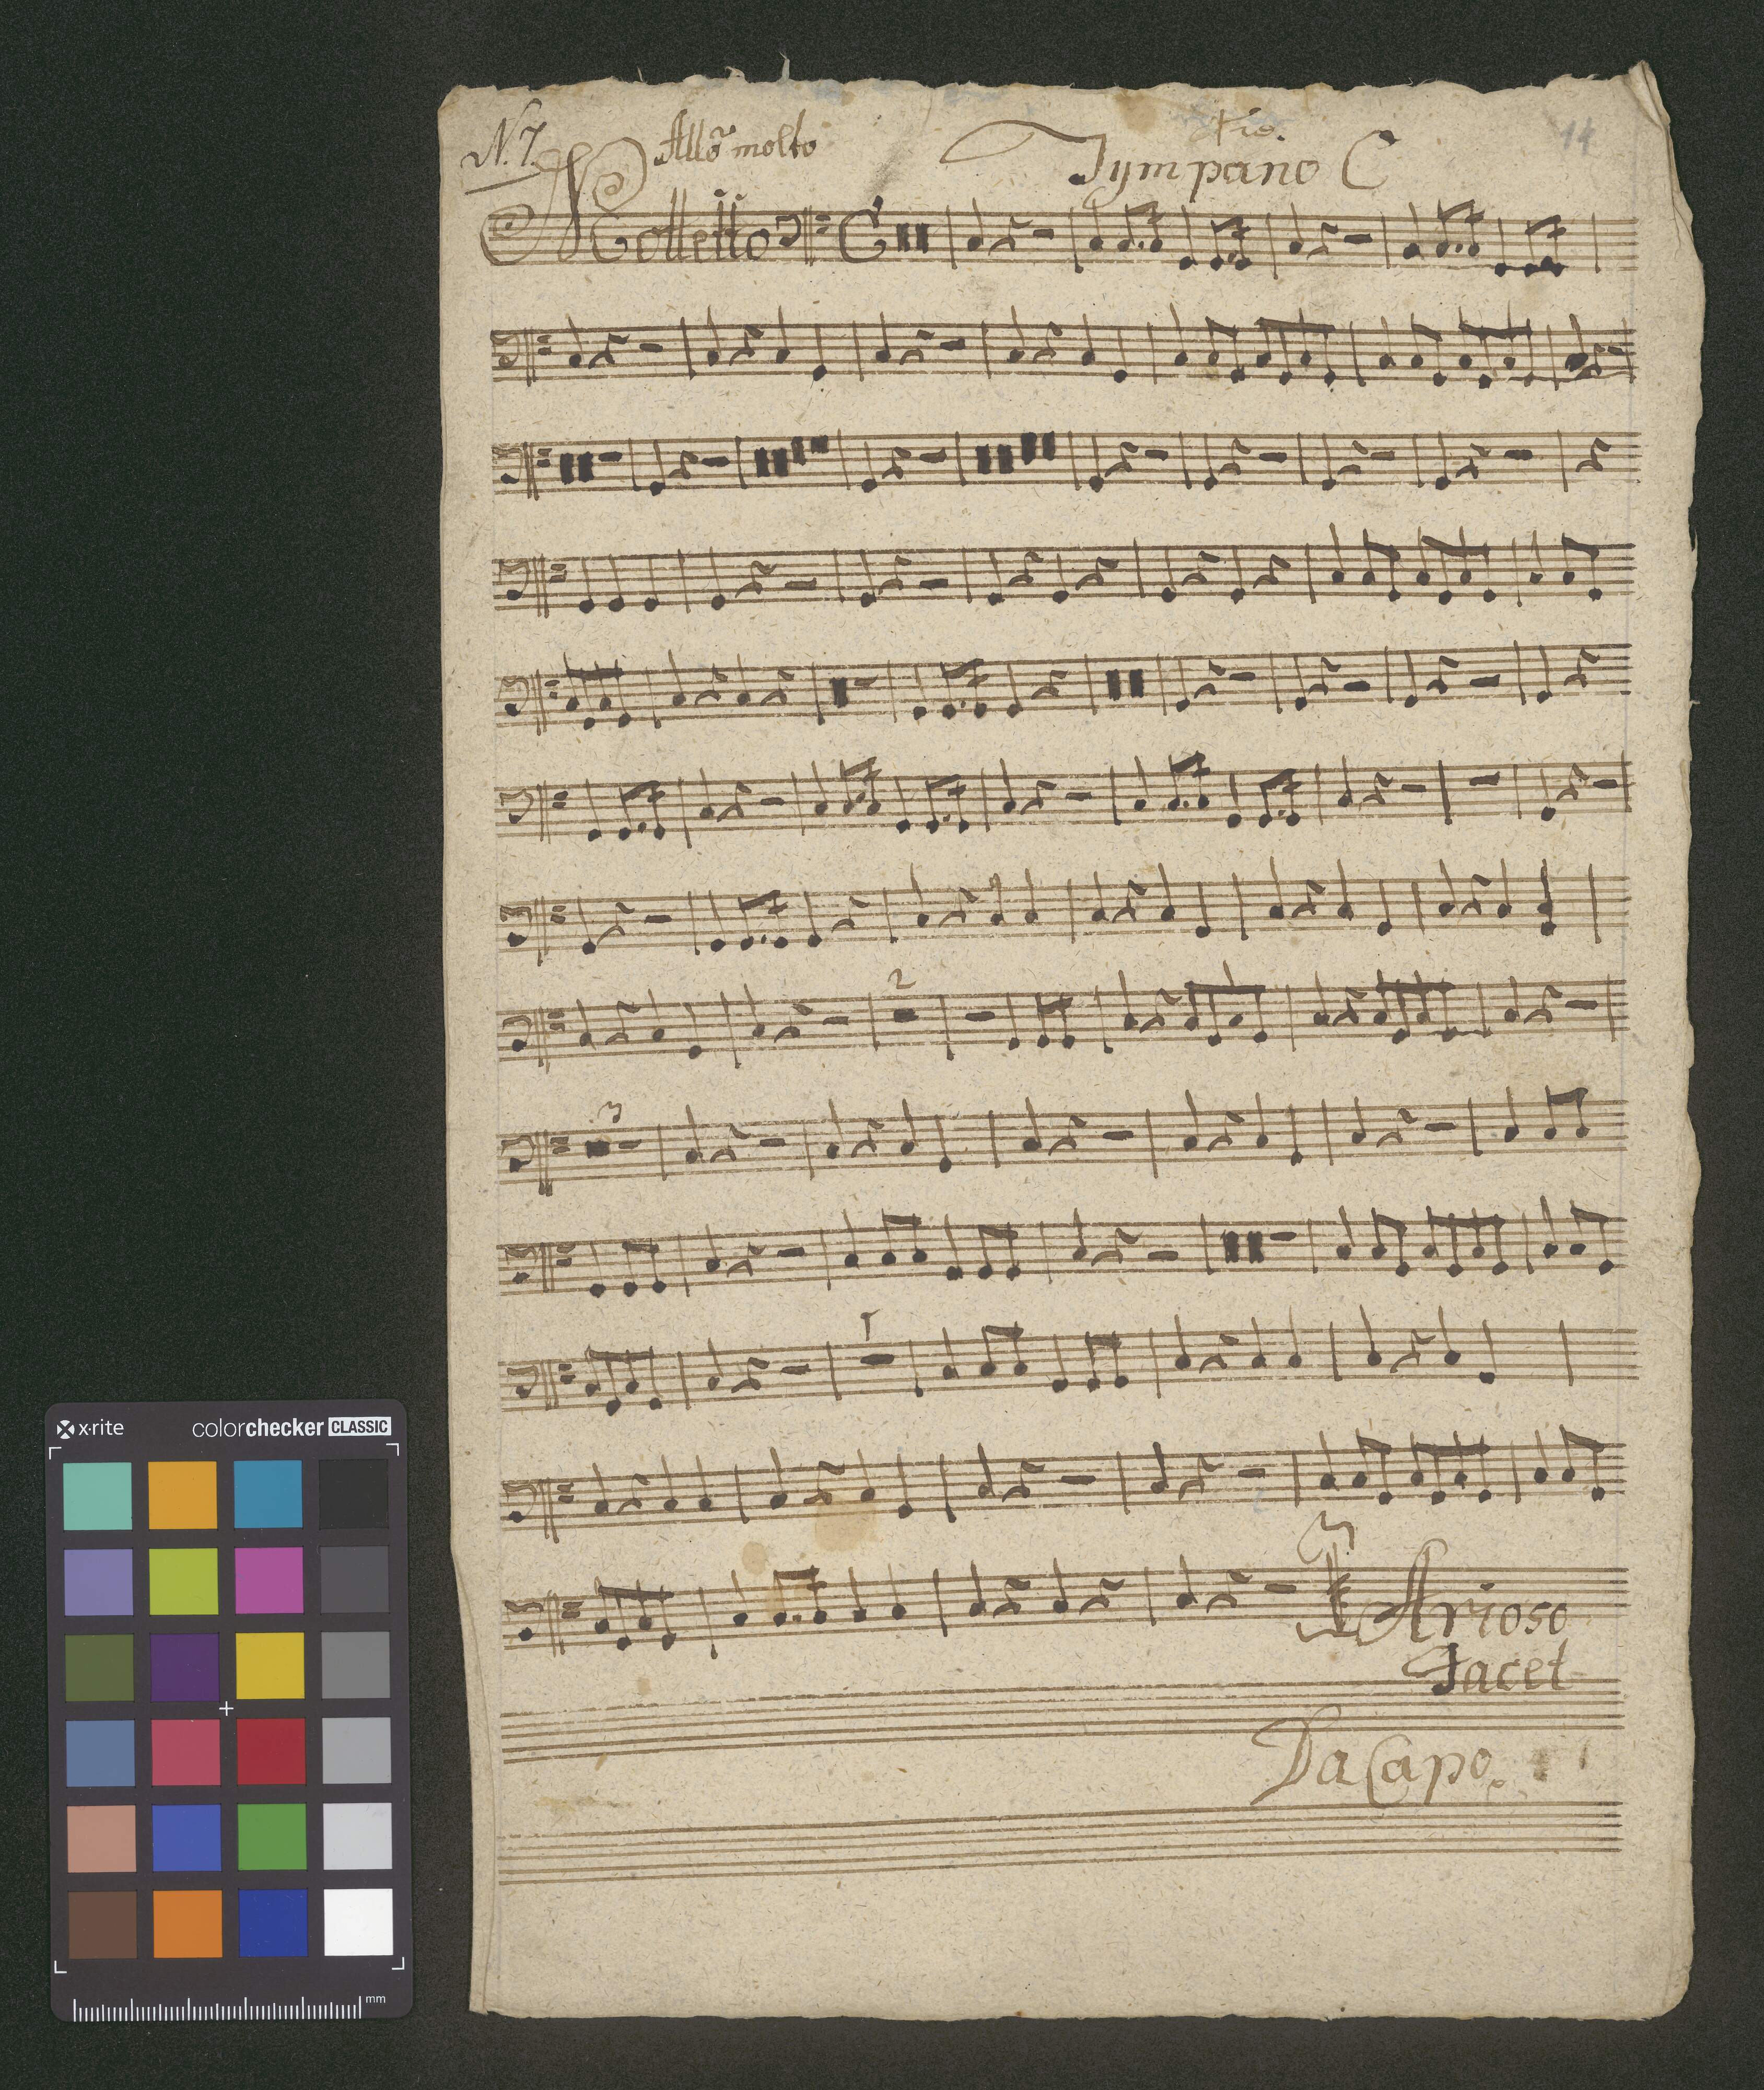 N. 7.
Allō molto
Tympano C
14
Mottetto
2
3
Arioso
Tacet
Da Capo.
x·rite
colorchecker CLASSIC
mm